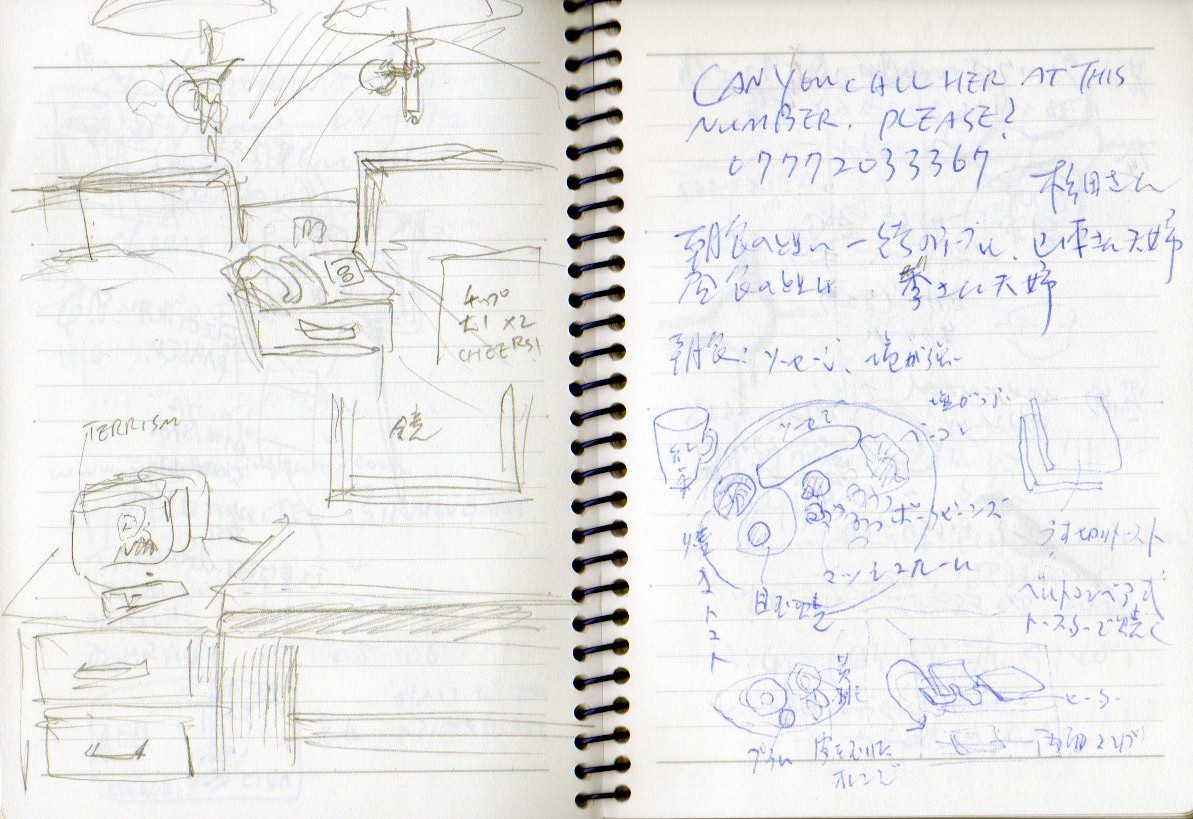 チップ
£1 ×2
CHEERS!
TERRISM
鏡
CAN YOU CALL HER AT THIS
NUMBER. PLEASE?
07772033367
松田さん
朝食のときは 一緒のテーブル、
昼食のときは 李さん夫婦
朝食: ソーセージ、塩が強い
塩がつぶ
ソーセージ
ベーコン
紅茶
ポークビーンズ
焼きトマト
マッシュルーム
目玉焼
うす切りトースト
ベルトコンベア式
トースターで焼く
プラム
皮をむいた
オレンジ